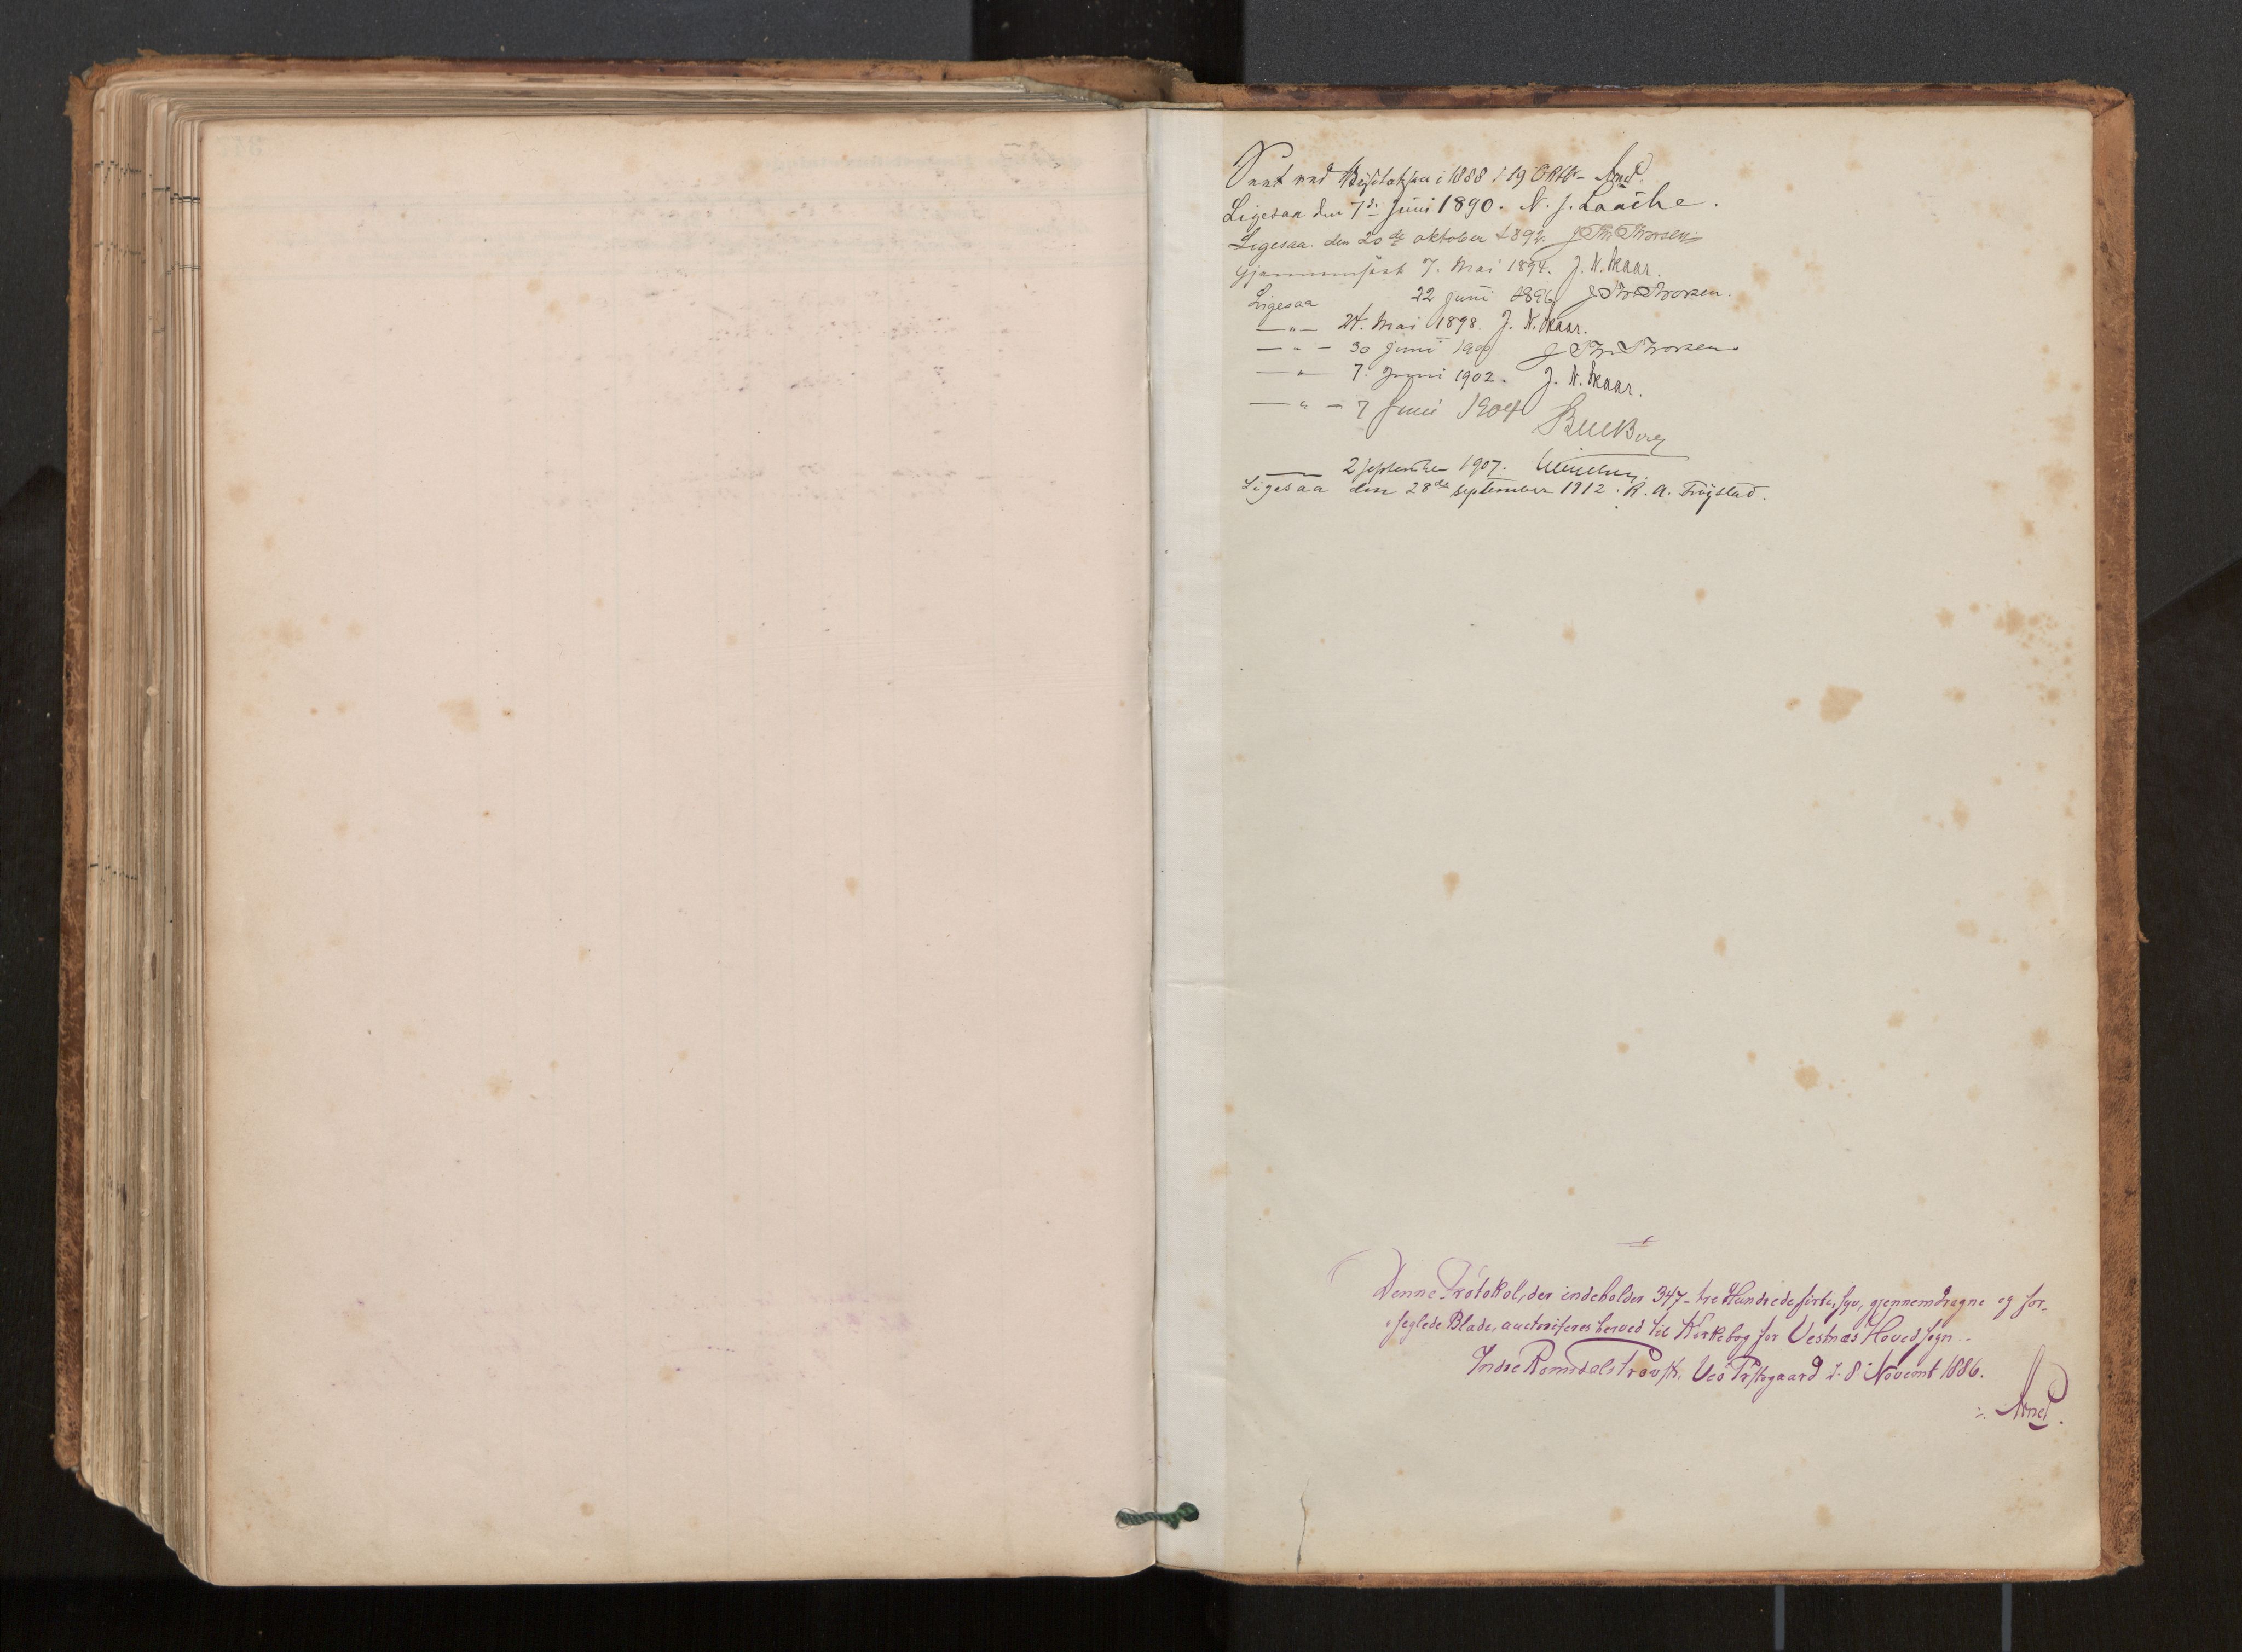 Seet ved Visitatsen i 1888 19 Oktbr - Arnet
Ligesaa den 7de Juni 1890. N. J. Laache.
Ligesaa den 20de oktober 1892. J Thr. Thorsen
Gjennemseet 7. Mai 1894. J. N. Skaar.
Ligesaa 22 juni 1896 J Thr. Thorsen.
—"— 24. Mai 1898. J. N. Skaar.
—"— 30 juni 1900 J Thr. Thorsen
—"— 7. Juni 1902. J. N. Skaar.
—"— 7 Juni 1904
2 september 1907.
Ligesaa den 28de september 1912. R. A. Frøystad.
Denne Protokol, der indeholder 347 - tre Hundrede firti, syv, gjennemdragne og for-
seglede Blade, auctoriseres herved til Kirkebog for Vestnæs Hovedsogn.
Indre Romsdals Provsti, Veö Prstegaard d. 8 Novemt 1886.
Arnet.